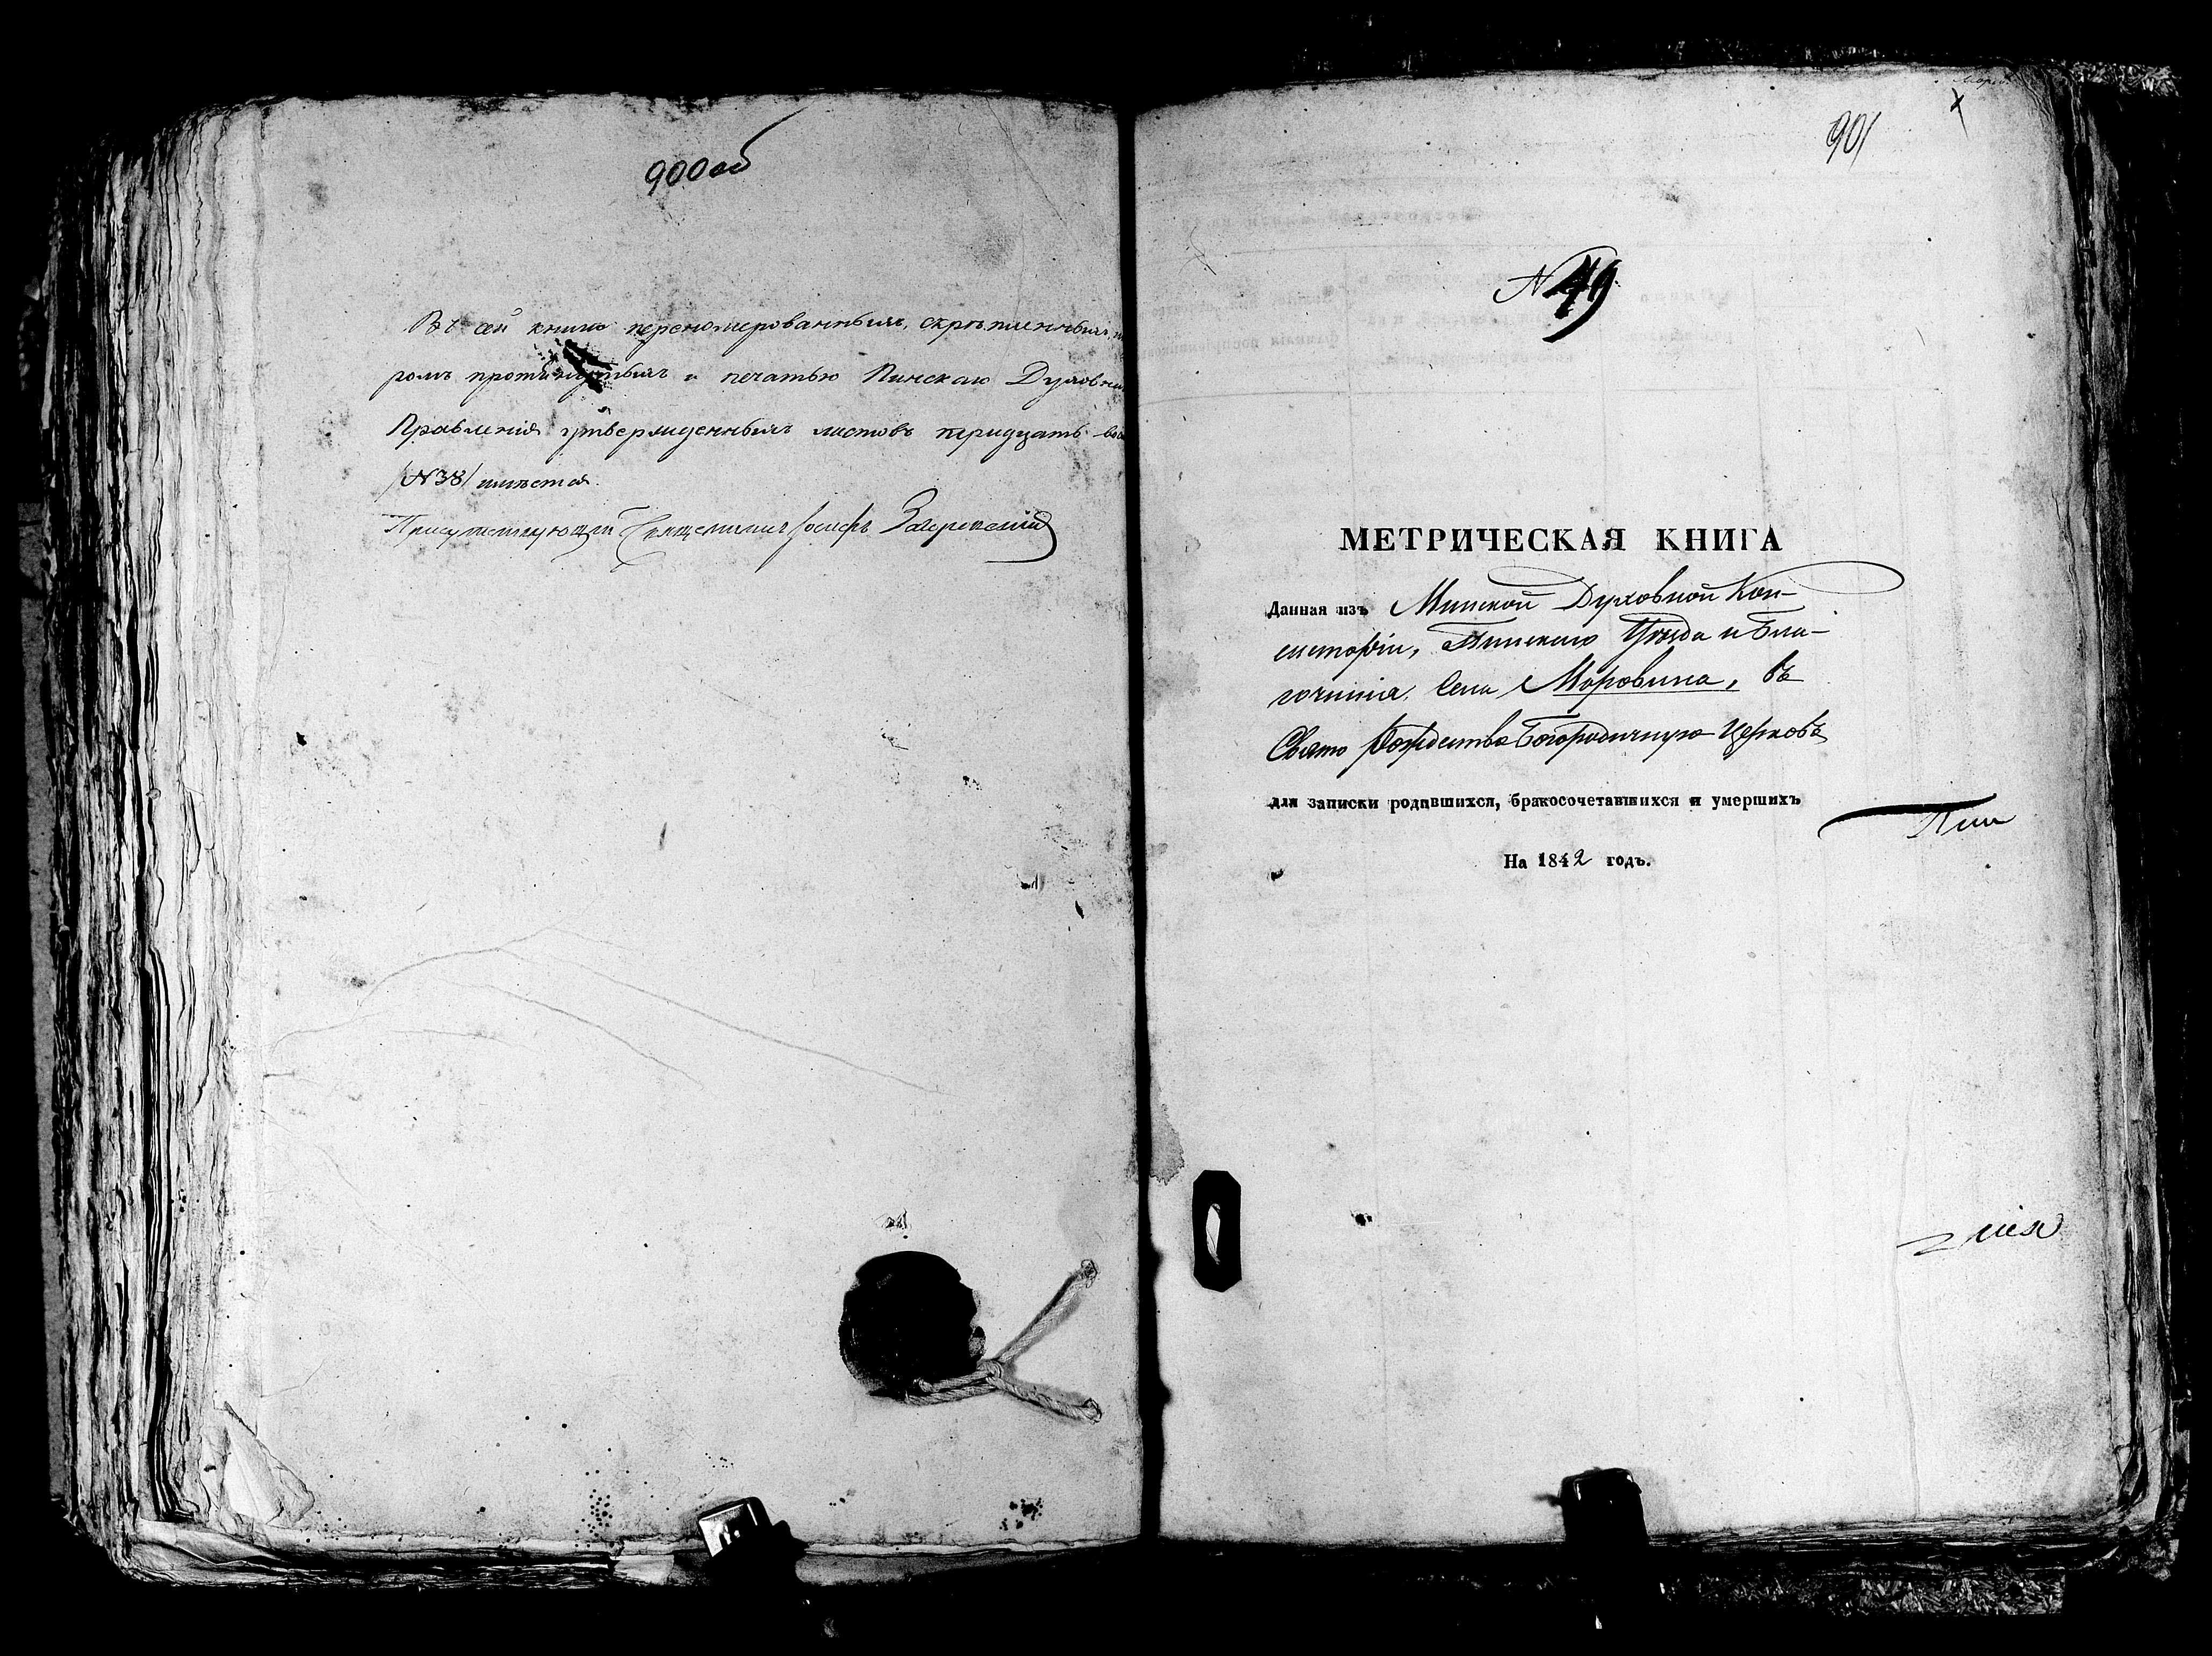 900 об
Въ сей книге перенумерованныхъ, скрепленныхъ,
ромъ протянутыхъ и печатью Пинскаго Духовна
Правленія утвержденныхъ листовъ тридцать во
/№38/ имѣется.
Присутствующій Священникъ Іосифъ
901
№ 49
МЕТРИЧЕСКАЯ КНИГА
Данная изъ Минской Духовной Кон-
систоріи, Пинскаго Уѣзда и Бла-
гочинія, Села Моровина, въ
Свято Рождество Богородичную Церковь
для записки родившихся, бракосочетавшихся и умершихъ
Пин
На 1842 годъ.